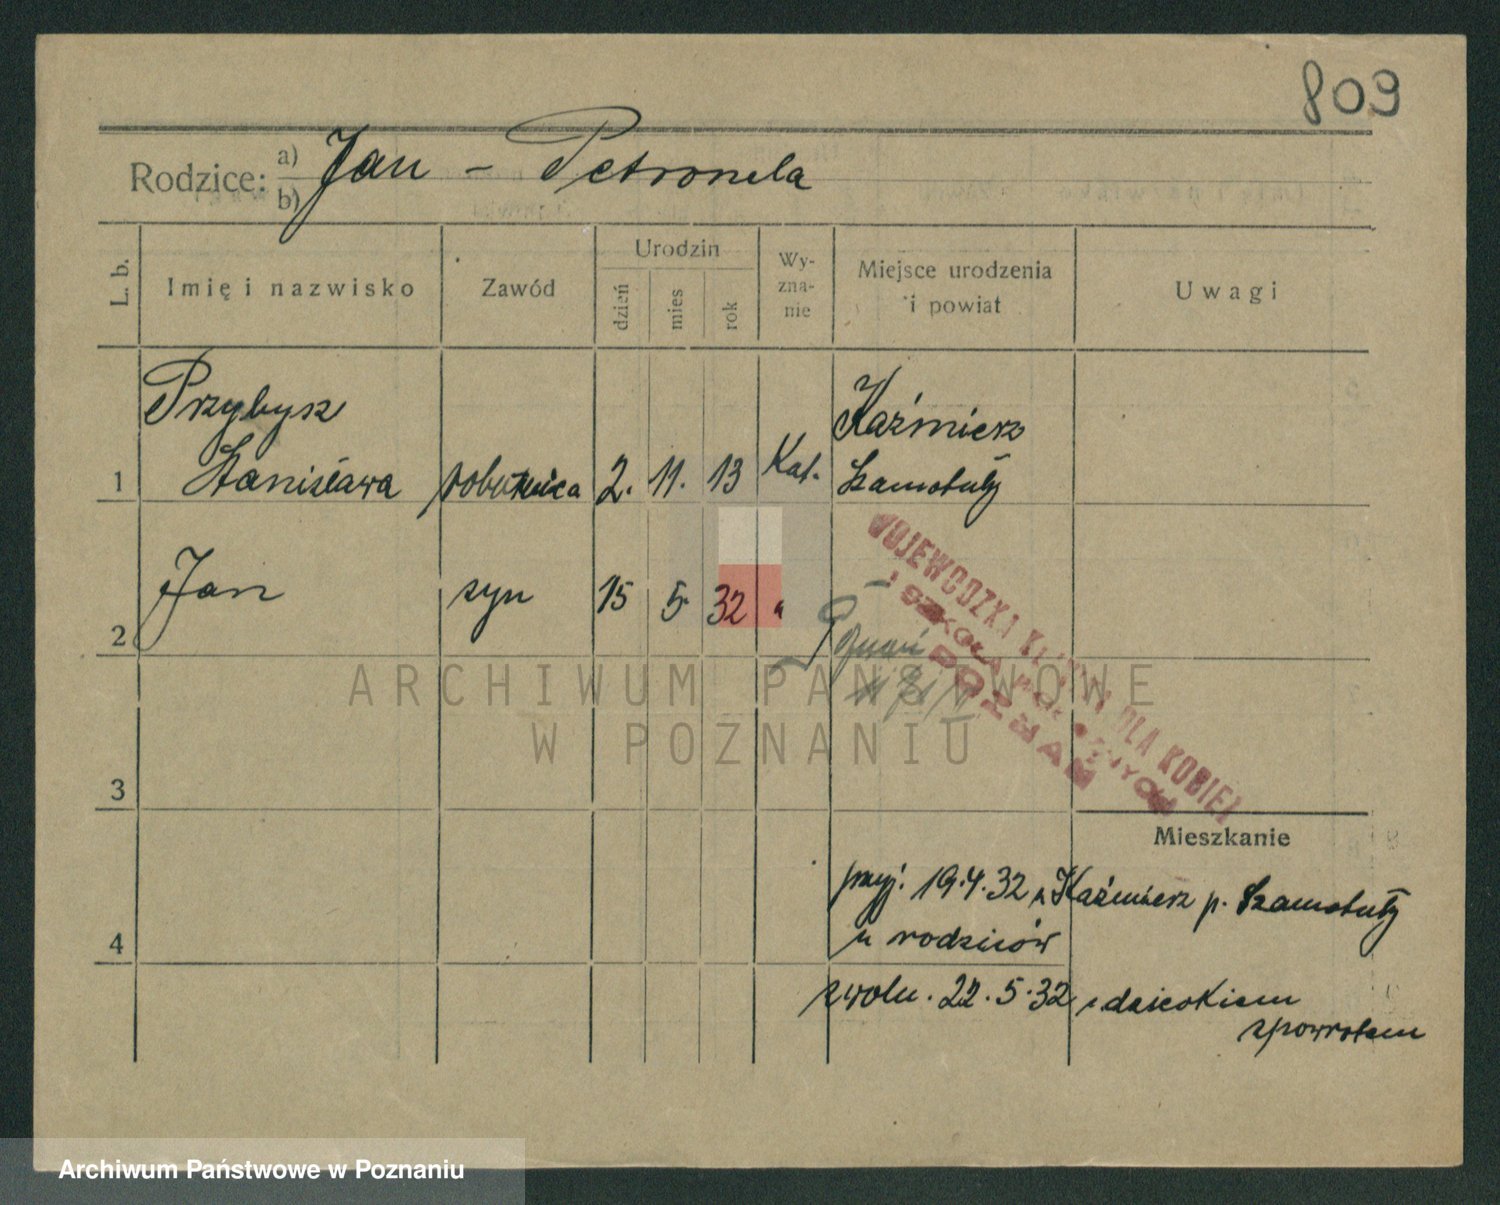 809
Rodzice: a) Jan - Petronela
b)
L. b.
Imię i nazwisko
Zawód
Urodzin
dzień
mies
rok
Wy-
zna-
nie
Miejsce urodzenia
i powiat
Uwagi
Przybysz
Kaźmierz
1 Stanisława robotnica 2. 11. 13 Kat. Szamotuły
Jan syn 15 5 32 "
2 Poznań
WOJEWÓDZKA KLINIKA DLA KOBIET
I SZKOŁA POŁOŻNYCH
POZNAŃ
ARCHIWUM PAŃSTWOWE
W POZNANIU
3
Mieszkanie
przyj. 19.4.32 z Kaźmierz p. Szamotuły
4 u rodziców
zwoln. 22.5.32 z dzieckiem
zpowrotem
Archiwum Państwowe w Poznaniu